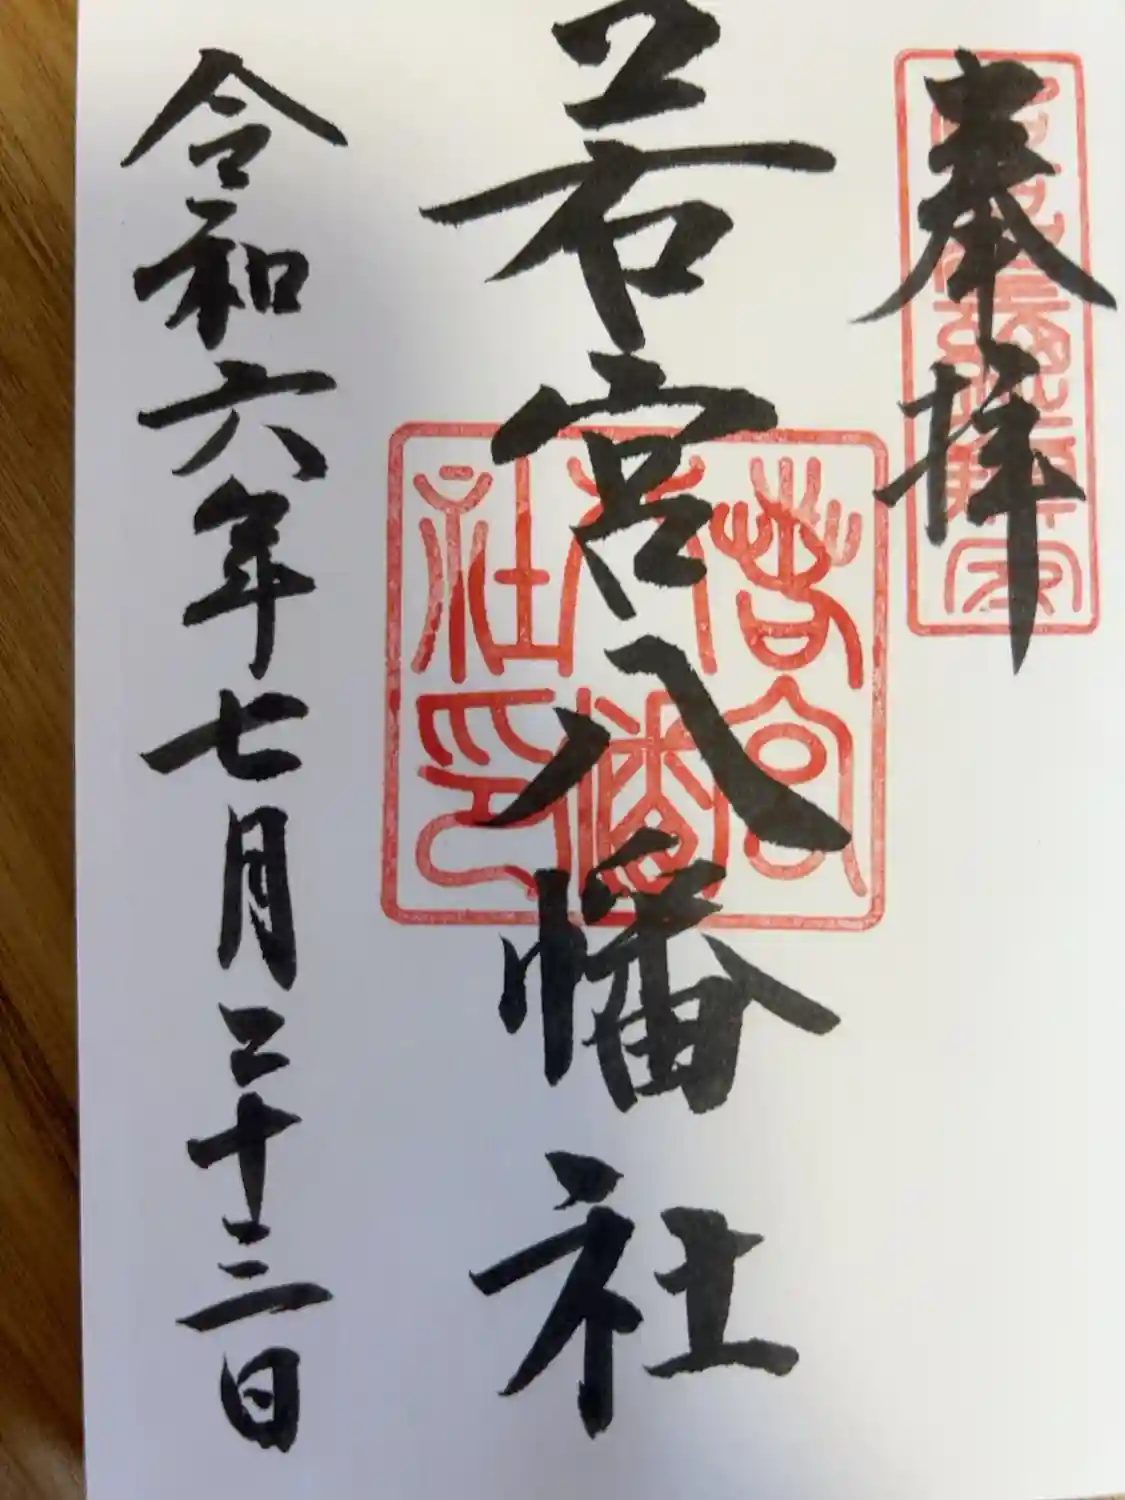 奉拝
若宮八幡社
若宮八幡社印
令和六年七月二十三日